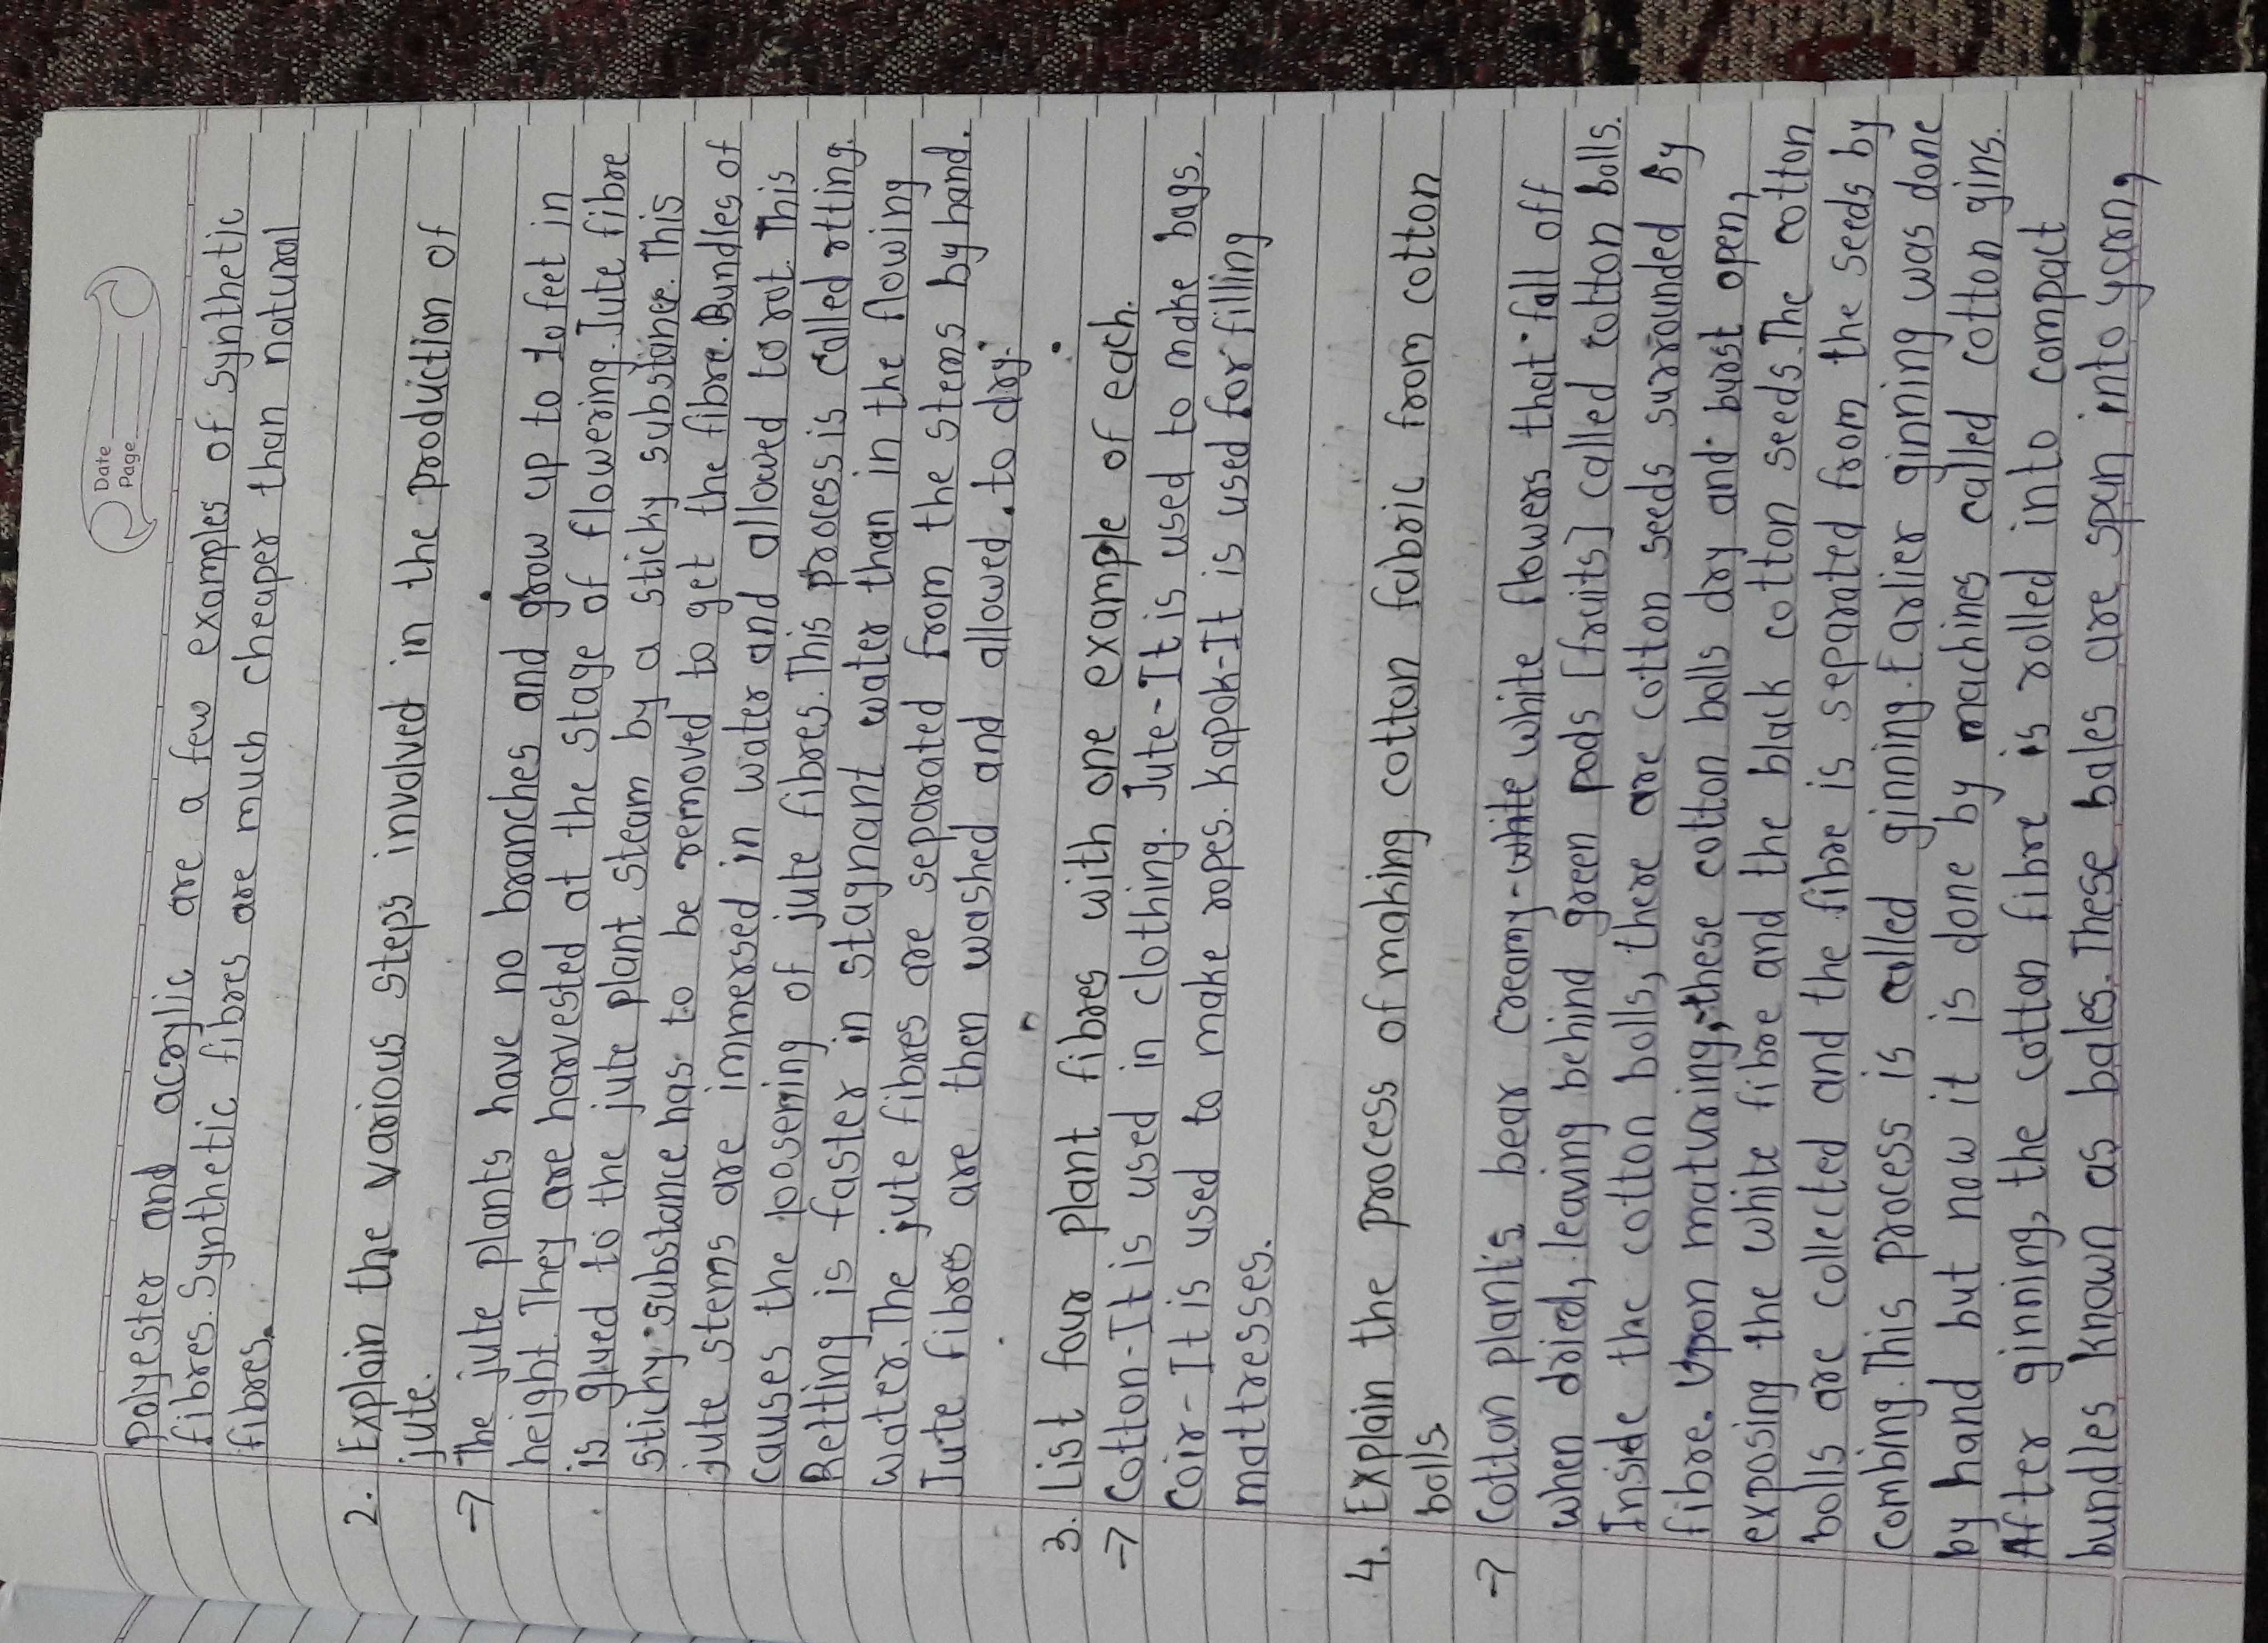 Date
Page
Polyester and acrylic are a few examples of synthetic
fibres. Synthetic fibres are much cheaper than natural
fibres.
2. Explain the various steps involved in the production of
jute.
→ The jute plants have no branches and grow up to 10 feet in
height. They are harvested at the stage of flowering. Jute fibre
is glued to the jute plant steam by a sticky substance. This
stichy substance has to be removed to get the fibre. Bundles of
jute stems are immersed in water and allowed to rot. This
causes the loosening of jute fibres. This process is called rtting.
Retting is faster in stagnant water than in the flowing
water. The jute fibres are separated from the stems by hand.
Jute fibres are then washed and allowed to dry.
3. List four plant fibres with one example of each.
→ Cotton-It is used in clothing. Jute-It is used to make bags.
Coir-It is used to make ropes. Kapok-It is used for filling
mattresses.
4. Explain the process of making cotton fabric from cotton
bolls.
→ Cotton plants bear creamy-white white flowers that fall off
when dried, leaving behind green pods [fruits] called cotton bolls.
Inside the cotton bolls, there are cotton seeds surrounded by
fibre. Upon maturing, these cotton bolls dry and burst open,
exposing the white fibre and the black cotton seeds. The cotton
bolls are collected and the fibre is separated from the seeds by
combing. This process is called ginning. Earlier ginning was done
by hand but now it is done by machines called cotton gins.
After ginning, the cotton fibre is rolled into compact
bundles known as bales. These bales are spun into yarn,